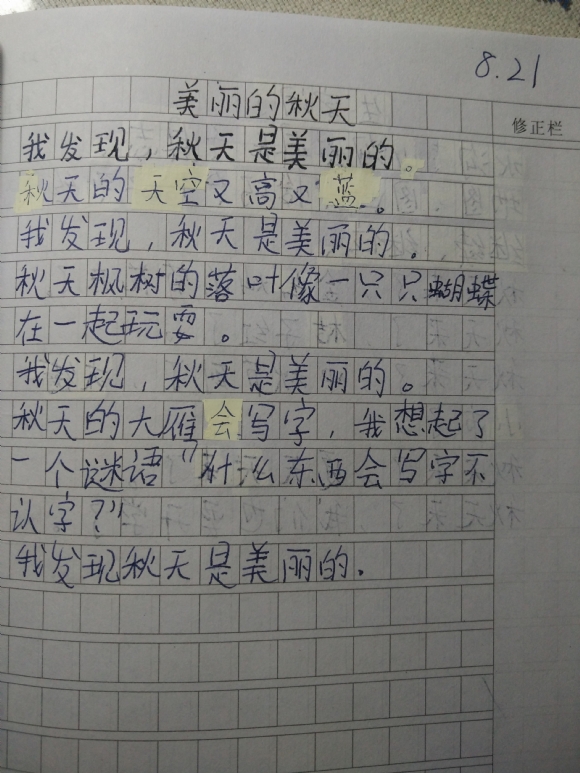 8.21
美丽的秋天
修正栏
我发现，秋天是美丽的。
秋天的天空又高又蓝。
我发现，秋天是美丽的。
秋天枫树的落叶像一只只蝴蝶
在一起玩耍。
我发现，秋天是美丽的。
秋天的大雁会写字，我想起了
一个谜语“什么东西会写字不
认字？”
我发现秋天是美丽的.